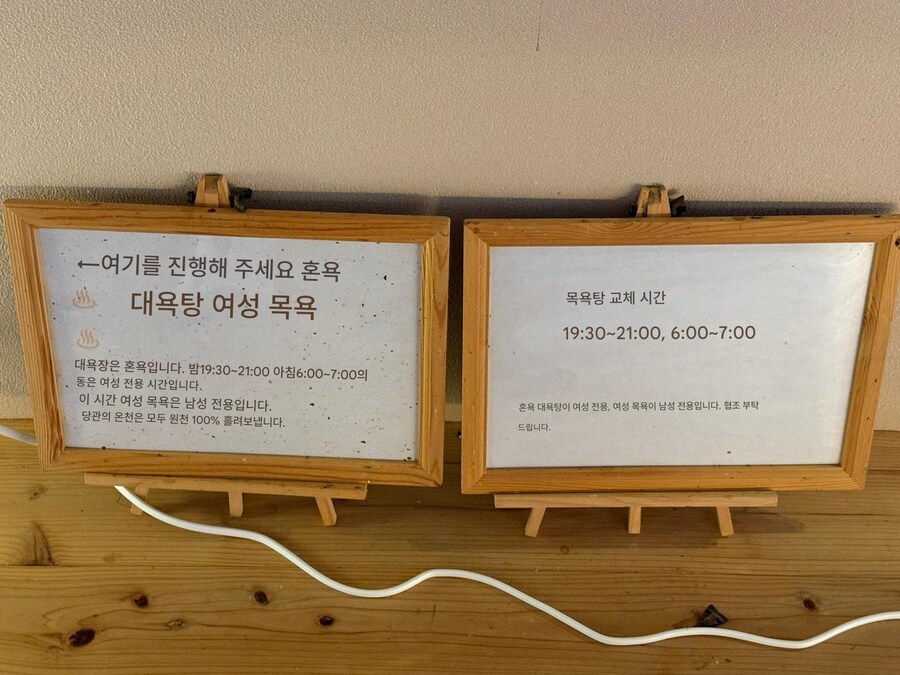 ←여기를 진행해 주세요 혼욕
대욕탕 여성 목욕
대욕장은 혼욕입니다. 밤19:30~21:00 아침6:00~7:00의
동은 여성 전용 시간입니다.
이 시간 여성 목욕은 남성 전용입니다.
당관의 온천은 모두 원천 100% 흘려보냅니다.
목욕탕 교체 시간
19:30~21:00, 6:00~7:00
혼욕 대욕탕이 여성 전용, 여성 목욕이 남성 전용입니다. 협조 부탁
드립니다.